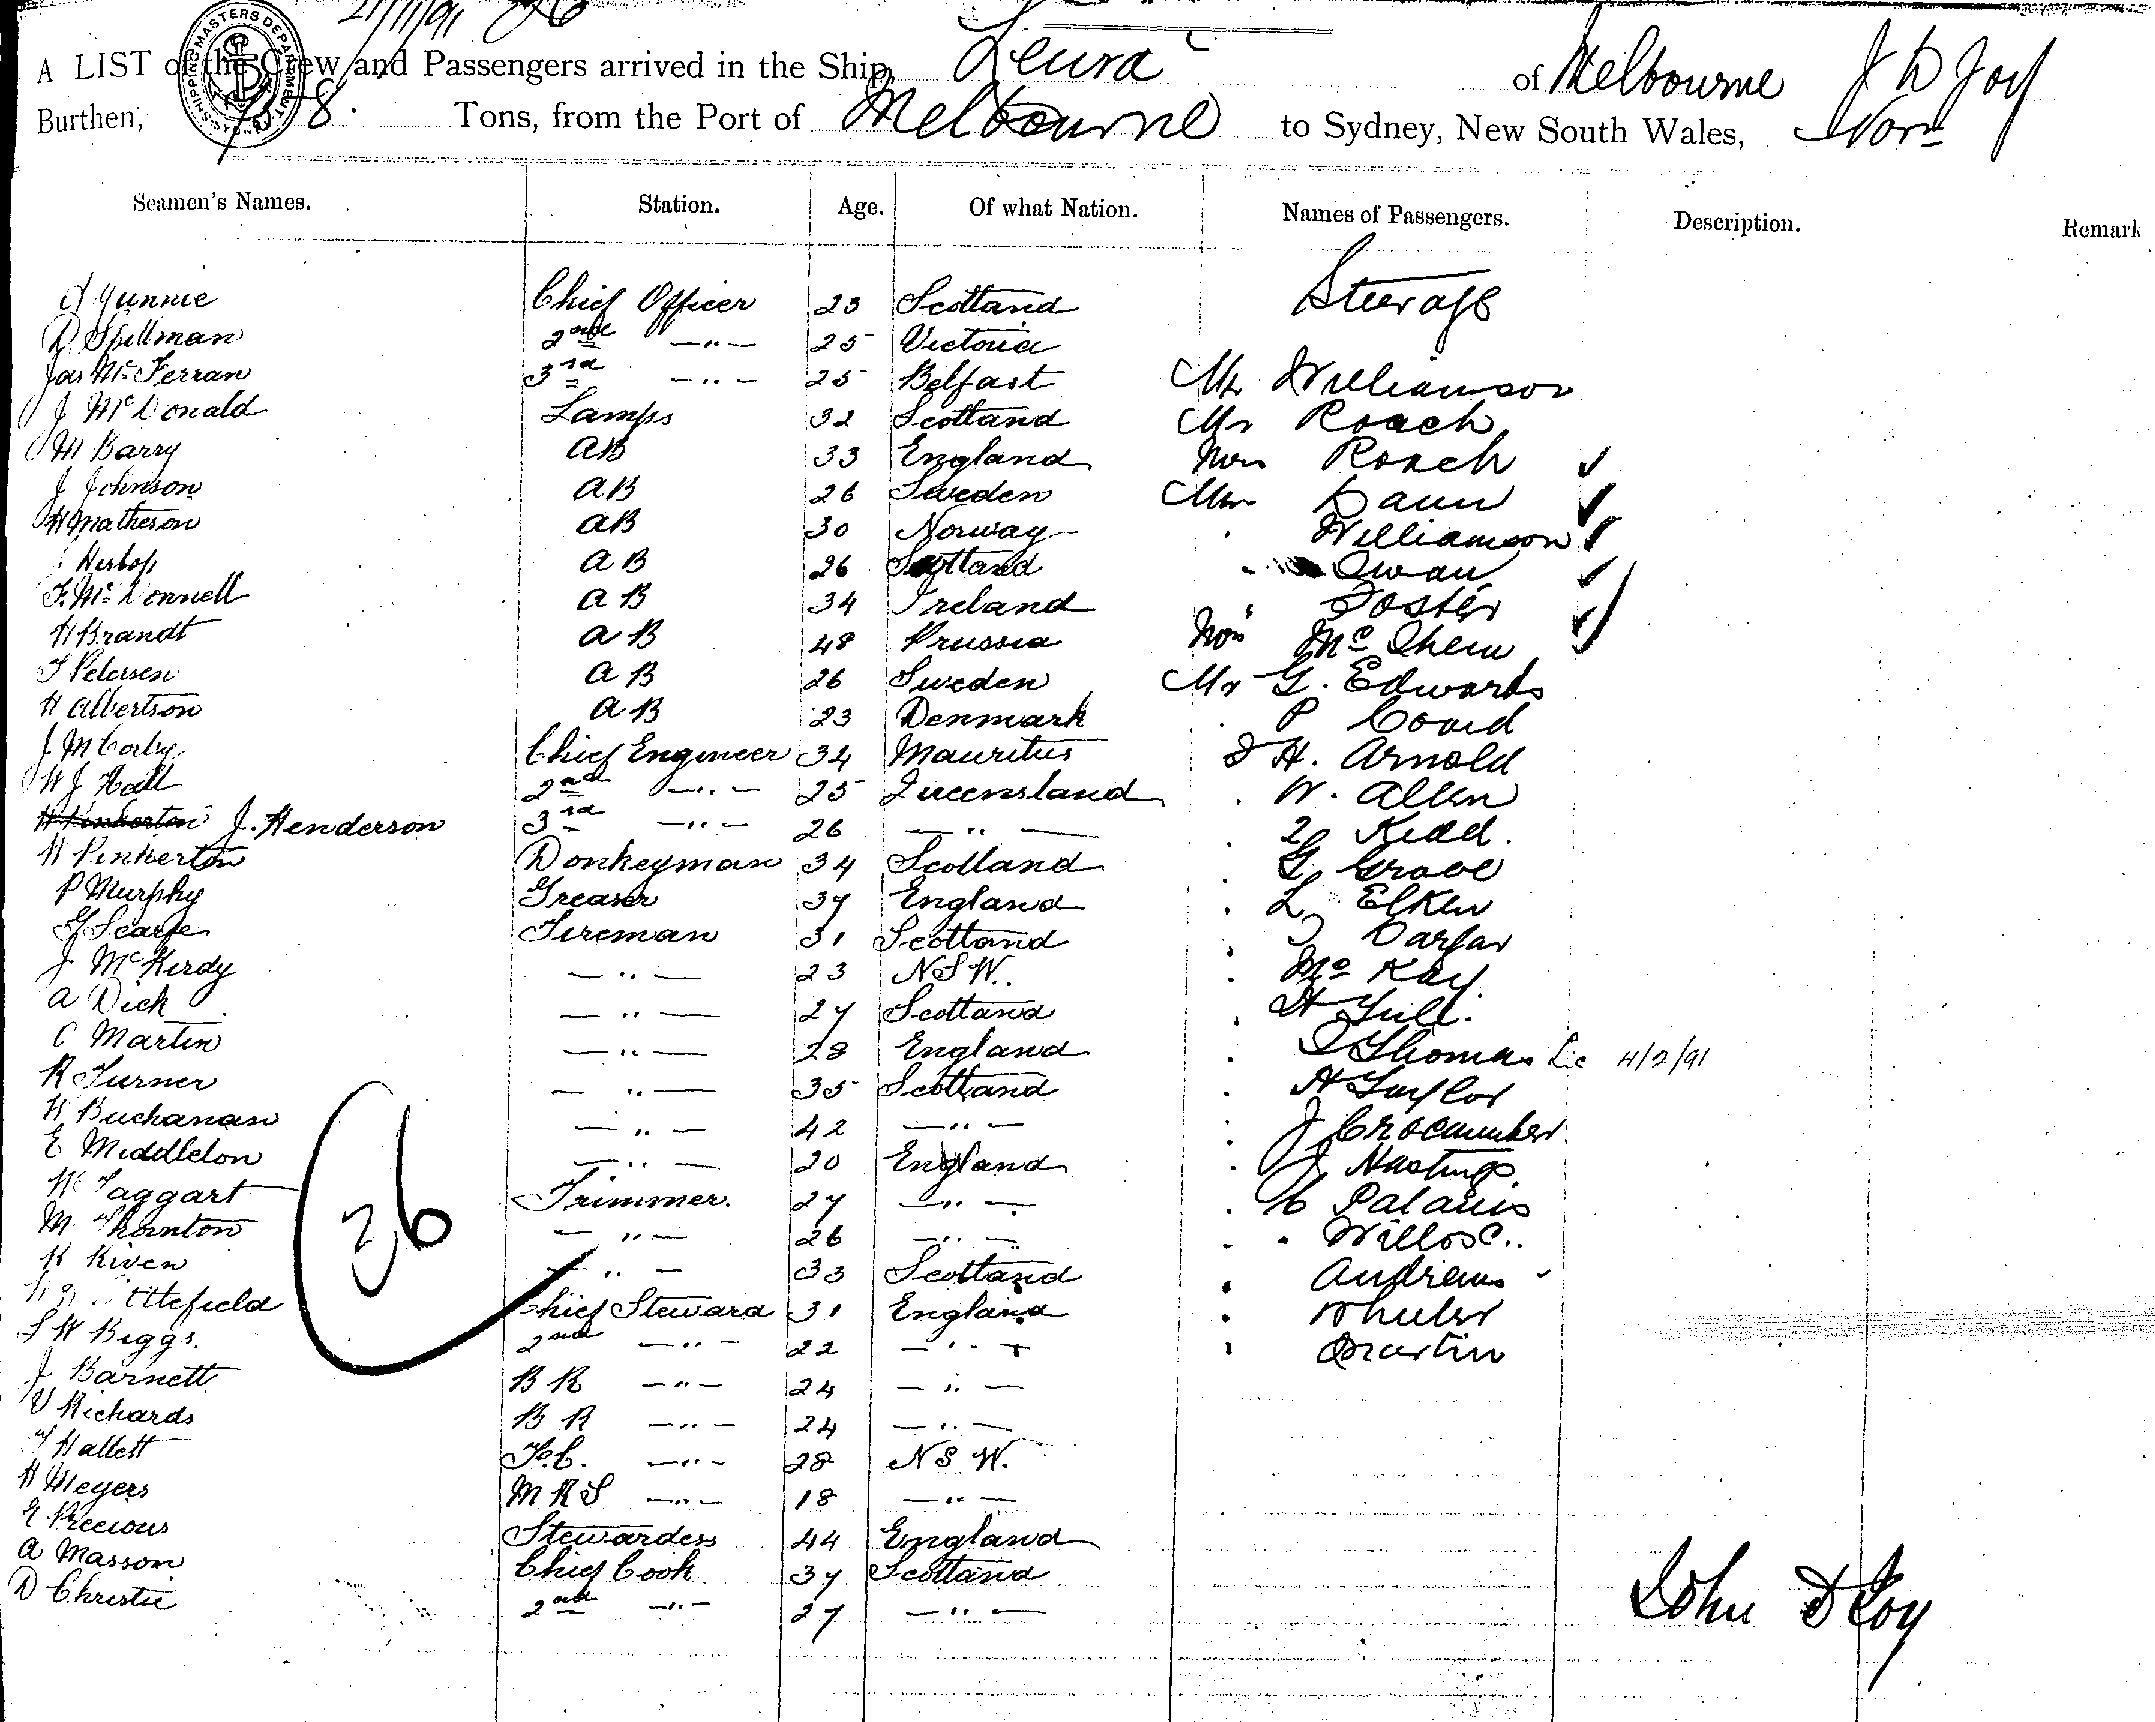 21/11/91
SHIPPING MASTERS DEPARTMENT SYDNEY
A LIST of the Crew and Passengers arrived in the Ship, Leura of Melbourne J D Joy
Burthen, Tons, from the Port of Melbourne to Sydney, New South Wales,
Seamen's Names. Station. Age. Of what Nation. Names of Passengers. Description. Remark
Gunnie Chief Officer 23 Scotland Steerage
D. Spillman 2nd —"— 25 Victoria
Jas McFerran 3rd —"— 25 Belfast Mr Williamson
J McDonald Lamps 32 Scotland Mr Roach
M Barry AB 33 England Mrs Roach ✓
J Johnson AB 26 Sweden ✓
H Matheson AB 30 Norway Williamson ✓
AB 26 Scotland Swan ✓
F. McDonnell AB 34 Ireland Foster ✓
H Brandt AB 48 Prussia Mc
F Petersen AB 26 Sweden Mr G. Edwards
H Albertson AB 23 Denmark P
J. M Corby Chief Engineer 34 Mauritus H. Arnold
W J Hall 2nd —"— 25 Queensland W. Allen
H Pinkerton J. Henderson 3rd —"— 26 —"— Kidd.
H Pinkerton Donkeyman 34 Scotland G Grove
P Murphy Greaser 37 England L Elken
Scarfe Fireman 31 Scotland
J McKirdy —"— 23 N S W. McKay.
A Dick —"— 27 Scotland H
C Martin —"— 28 England Thomas Lic 4/2/91
R Turner —"— 35 Scotland H Taylor
W Buchanan —"— 42 —"— J
E Middleton —"— 20 England J Hastings
W Taggart Trimmer. 27 —"—
M Thornton —"— 26 —"—
R Riven —"— 33 Scotland Andrews
Chief Steward 31 England Wheeler
S W Biggs. 2nd —"— 22 —"— Martin
J Barnett B R —"— 24 —"—
V Richards B R —"— 24 —"—
T Hallett F.C. —"— 28 N S W.
H Meyers M R S —"— 18 —"—
E Precious Stewardess 44 England
A Masson Chief Cook 37 Scotland
D Christie 2nd —"— 27 —"—
26
John D Joy